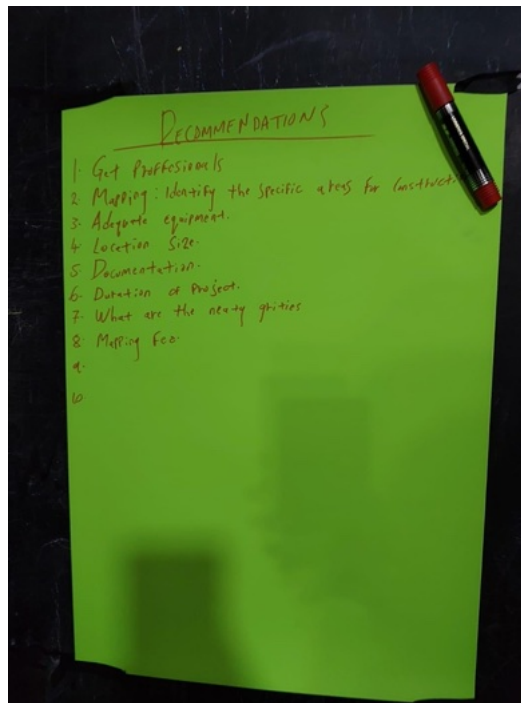 RECOMMENDATIONS
1. Get Proffesionals
2. Mapping: Identify the specific areas for Construct.
3. Adequate equipment.
4. Location Size.
5. Documentation.
6. Duration of Project.
7. What are the neaty grities
8. Mapping Fee.
9.
10